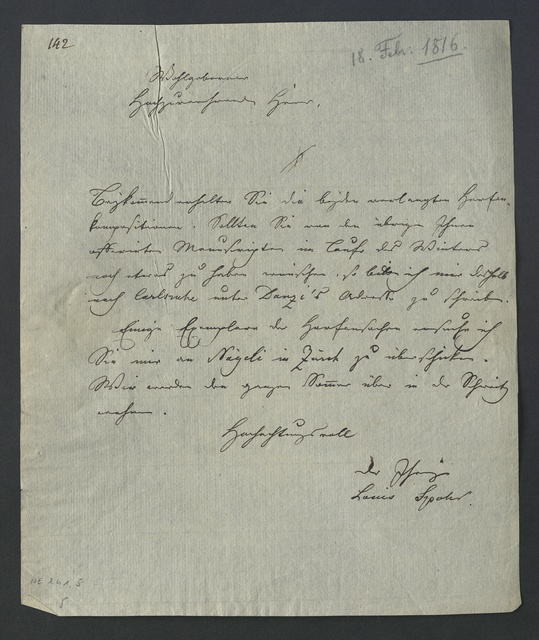 142
18. Febr. 1816.
Wohlgeborner
Hochzuverehrender Herr,
Beykommend erhalten Sie die beyden verlangten Harfen-
kompositionen. Sollten Sie von den übrigen Ihnen
offerirten Manuscripten im Laufe des Winters
noch etwas zu haben wünschen, so bitte ich mir deshalb
nach Carlsruhe unter Danzi's Adresse zu schreiben.
Einige Exemplare der Harfensachen ersuche ich
Sie mir an Nägeli in Zürch zu überschicken.
Wir werden den ganzen Sommer über in der Schweitz
Hochachtungsvoll
der Ihrige
Louis Spohr.